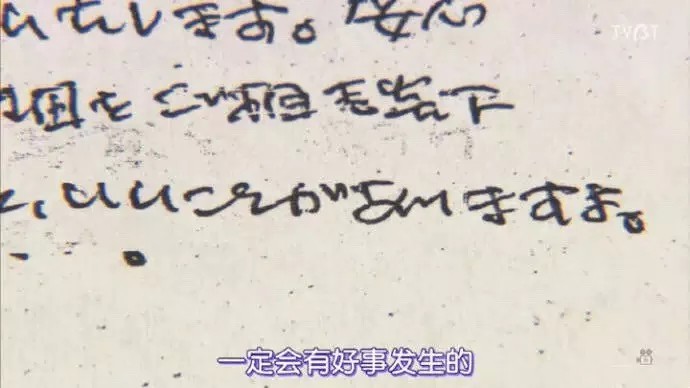 TVBT
いたします。安心
を ご 下
、いいことがありますよ。
一定会有好事发生的